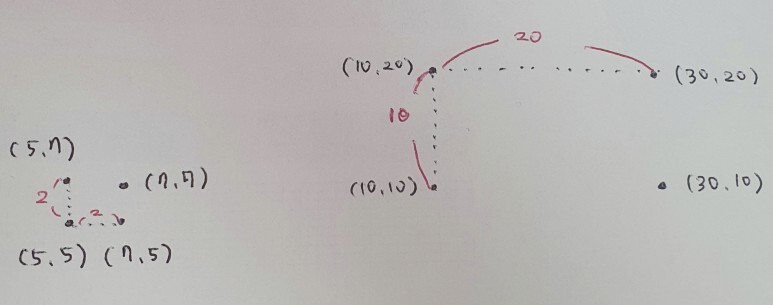 20
(10,20)
(30,20)
10
(5,7)
(7,7)
(10,10)
(30,10)
2
2
(5,5) (7,5)